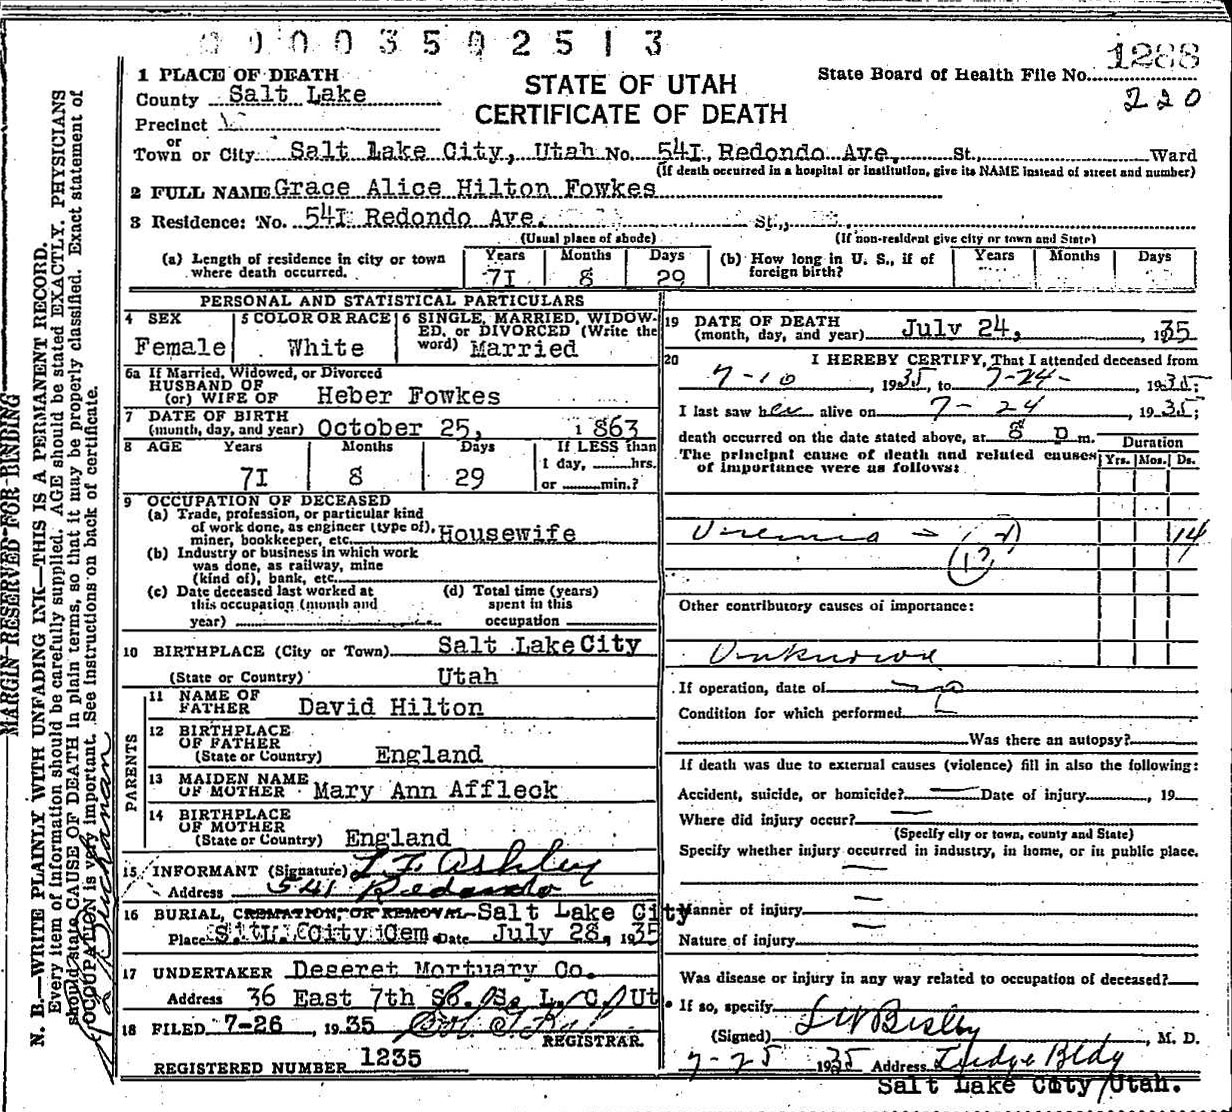 00003502513
1288
220
STATE OF UTAH
CERTIFICATE OF DEATH
State Board of Health File No.
1 PLACE OF DEATH
County Salt Lake
Precinct
or
Town or City Salt Lake City, Utah No. 541 Redondo Ave. St., Ward
(If death occurred in a hospital or institution, give its NAME instead of street and number)
2 FULL NAME Grace Alice Hilton Fowkes
3 Residence: No. 541 Redondo Ave. St.,
(Usual place of abode) (If non-resident give city or town and State)
(a) Length of residence in city or town where death occurred. Years 71 Months 8 Days 29
(b) How long in U. S., if of foreign birth? Years Months Days
PERSONAL AND STATISTICAL PARTICULARS
4 SEX Female
5 COLOR OR RACE White
6 SINGLE, MARRIED, WIDOWED, or DIVORCED (Write the word) Married
6a If Married, Widowed, or Divorced
HUSBAND OF
(or) WIFE OF Heber Fowkes
7 DATE OF BIRTH
(month, day, and year) October 25, 1863
8 AGE Years 71 Months 8 Days 29
If LESS than
1 day, hrs.
or min.?
9 OCCUPATION OF DECEASED
(a) Trade, profession, or particular kind
of work done, as engineer (type of),
miner, bookkeeper, etc. Housewife
(b) Industry or business in which work
was done, as railway, mine
(kind of), bank, etc.
(c) Date deceased last worked at
this occupation (month and
year)
(d) Total time (years)
spent in this
occupation
10 BIRTHPLACE (City or Town) Salt Lake City
(State or Country) Utah
PARENTS
11 NAME OF
FATHER David Hilton
12 BIRTHPLACE
OF FATHER
(State or Country) England
13 MAIDEN NAME
OF MOTHER Mary Ann Affleck
14 BIRTHPLACE
OF MOTHER
(State or Country) England
15 INFORMANT (Signature) L. F. Ashley
Address 541 Redondo
16 BURIAL, CREMATION, OR REMOVAL Salt Lake City
Place S.L. City Cem Date July 28, 1935
17 UNDERTAKER Deseret Mortuary Co.
Address 36 East 7th So. S. L. C. Ut
18 FILED 7-26, 1935
REGISTRAR.
REGISTERED NUMBER 1235
19 DATE OF DEATH
(month, day, and year) July 24, 1935
20 I HEREBY CERTIFY, That I attended deceased from
7-10, 1935, to 7-24-, 1935;
I last saw her alive on 7-24, 1935;
death occurred on the date stated above, at 8 p m.
The principal cause of death and related causes
of importance were as follows:
Duration
Yrs. Mos. Ds.
Uremia 14
Other contributory causes of importance:
Unknown
If operation, date of
Condition for which performed
Was there an autopsy?
If death was due to external causes (violence) fill in also the following:
Accident, suicide, or homicide? Date of injury , 19
Where did injury occur?
(Specify city or town, county and State)
Specify whether injury occurred in industry, in home, or in public place.
Manner of injury
Nature of injury
Was disease or injury in any way related to occupation of deceased?
If so, specify
(Signed) , M. D.
7-25 1935 Address Judge Bldg
Salt Lake City Utah.
MARGIN RESERVED FOR BINDING
N. B.—WRITE PLAINLY WITH UNFADING INK—THIS IS A PERMANENT RECORD.
Every item of information should be carefully supplied. AGE should be stated EXACTLY. PHYSICIANS
should state CAUSE OF DEATH in plain terms, so that it may be properly classified. Exact statement of
OCCUPATION is very important. See instructions on back of certificate.